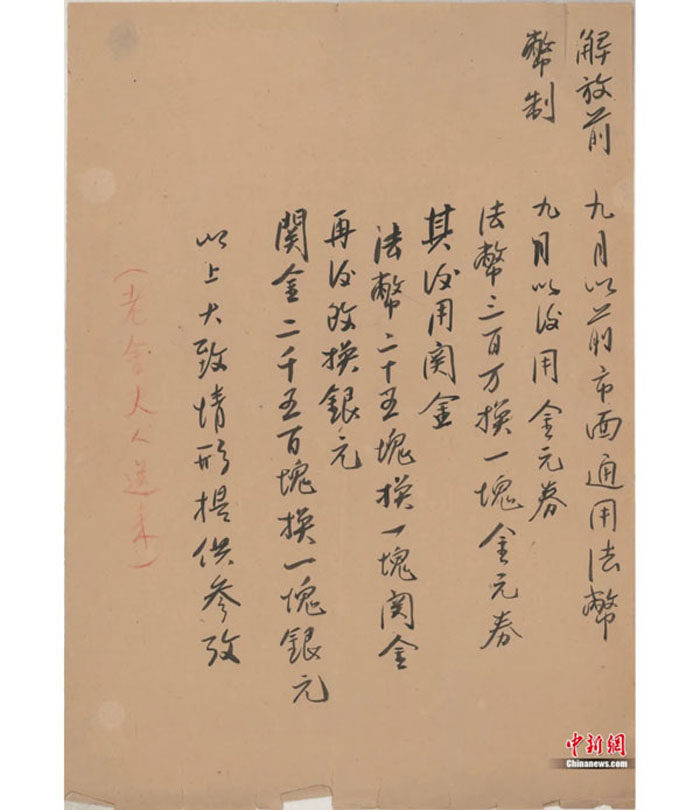 解放前 九月以前市面通用法幣
幣制 九月以後用金元券
法幣三百万換一塊金元券
其後用関金
法幣二十五塊換一塊関金
再後改換銀元
関金二千五百塊換一塊銀元
以上大致情形提供參攷
(老舍夫人送来)
中新網
Chinanews.com